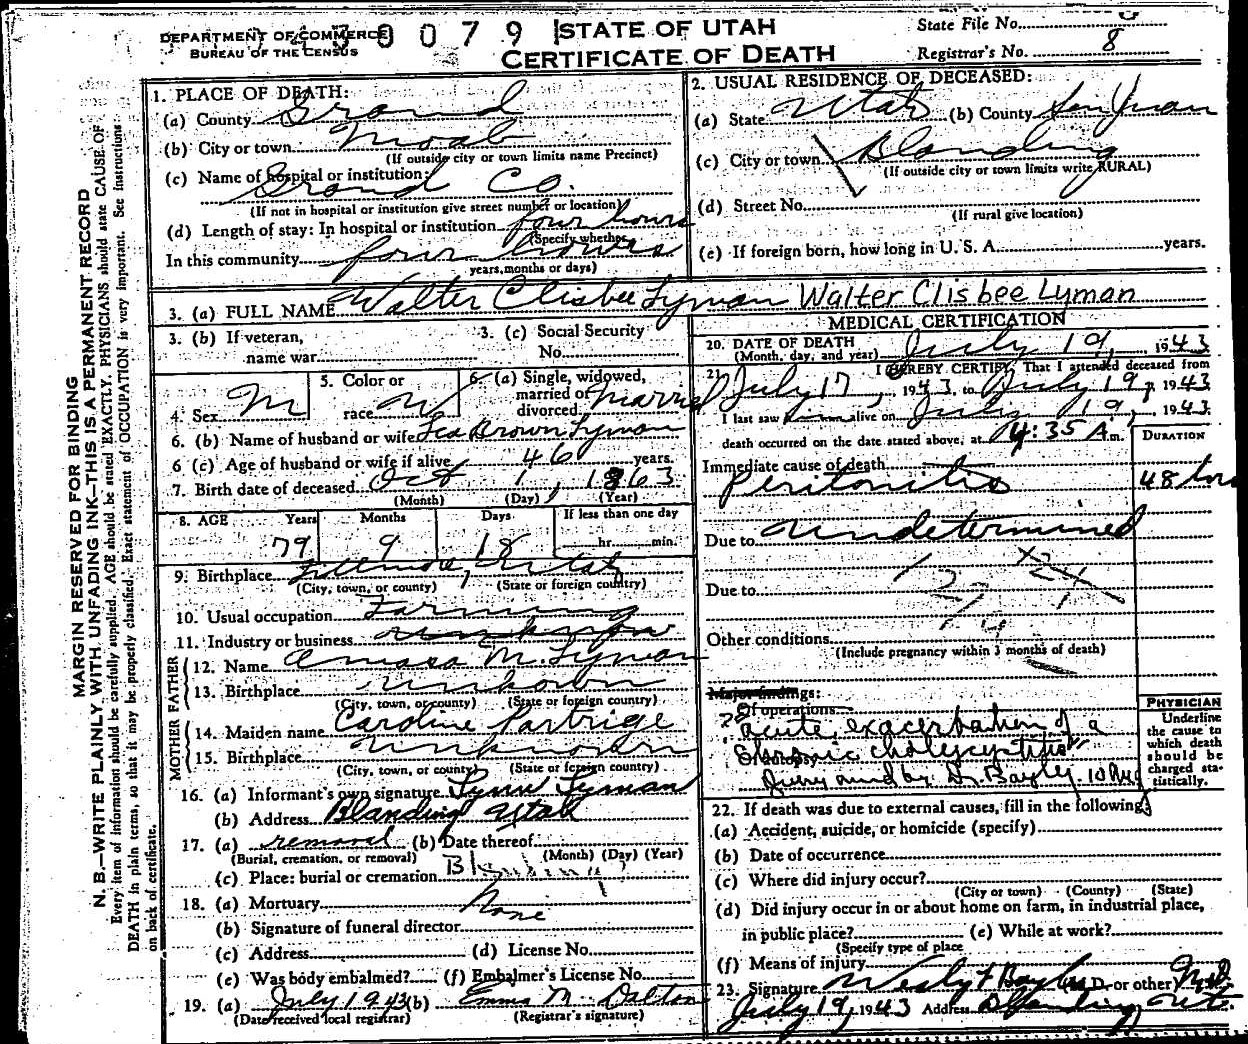 DEPARTMENT OF COMMERCE
BUREAU OF THE CENSUS
430079
STATE OF UTAH
CERTIFICATE OF DEATH
State File No.
Registrar's No. 8
MARGIN RESERVED FOR BINDING
N. B.—WRITE PLAINLY WITH UNFADING INK—THIS IS A PERMANENT RECORD
Every item of information should be carefully supplied. AGE should be stated EXACTLY. PHYSICIANS should state CAUSE OF
DEATH in plain terms, so that it may be properly classified. Exact statement of OCCUPATION is very important. See instructions
on back of certificate.
1. PLACE OF DEATH:
(a) County Grand
(b) City or town Moab
(If outside city or town limits name Precinct)
(c) Name of hospital or institution:
Grand Co.
(If not in hospital or institution give street number or location)
(d) Length of stay: In hospital or institution four hours
(Specify whether
In this community four hours
years, months or days)
2. USUAL RESIDENCE OF DECEASED:
(a) State Utah (b) County San Juan
(c) City or town Blanding
(If outside city or town limits write RURAL)
(d) Street No.
(If rural give location)
(e) If foreign born, how long in U. S. A. years.
3. (a) FULL NAME Walter Clisbee Lyman Walter Clisbee Lyman
3. (b) If veteran,
name war
3. (c) Social Security
No.
4. Sex M
5. Color or
race W
6. (a) Single, widowed,
married or
divorced Married
6. (b) Name of husband or wife Brown Lyman
6 (c) Age of husband or wife if alive 46 years.
7. Birth date of deceased Oct 1, 1863
(Month) (Day) (Year)
8. AGE Years Months Days If less than one day
79 9 18 hr. min.
9. Birthplace Fillmore, Utah
(City, town, or county) (State or foreign country)
10. Usual occupation Farming
11. Industry or business
FATHER
12. Name Amasa M. Lyman
13. Birthplace unkown
(City, town, or county) (State or foreign country)
MOTHER
14. Maiden name Caroline Partrige
15. Birthplace unknown
(City, town, or county) (State or foreign country)
16. (a) Informant's own signature Lyman
(b) Address Blanding Utah
17. (a) removal (b) Date thereof
(Burial, cremation, or removal) (Month) (Day) (Year)
(c) Place: burial or cremation Blanding
18. (a) Mortuary None
(b) Signature of funeral director
(c) Address (d) License No.
(e) Was body embalmed? (f) Embalmer's License No.
19. (a) July 1943 (b) Emma M. Dalton
(Date received local registrar) (Registrar's signature)
MEDICAL CERTIFICATION
20. DATE OF DEATH
(Month, day, and year) July 19, 1943
21. I HEREBY CERTIFY, That I attended deceased from
July 17, 1943 to July 19, 1943
I last saw him alive on July 19, 1943
death occurred on the date stated above, at 4:35 A.m.
DURATION
Immediate cause of death
Peritonitis 48 hrs
Due to undetermined
Due to
Other conditions
(Include pregnancy within 3 months of death)
Major findings:
Of operations
acute exacerbation of a
chronic cholecystitis
Query ansd by Dr. Bayley
PHYSICIAN
Underline
the cause to
which death
should be
charged sta-
tistically.
22. If death was due to external causes, fill in the following:
(a) Accident, suicide, or homicide (specify)
(b) Date of occurrence
(c) Where did injury occur?
(City or town) (County) (State)
(d) Did injury occur in or about home on farm, in industrial place,
in public place? (e) While at work?
(Specify type of place
(f) Means of injury
23. Signature Bayles M.D. or other M.D.
July 19, 1943 Address Blanding Ut.